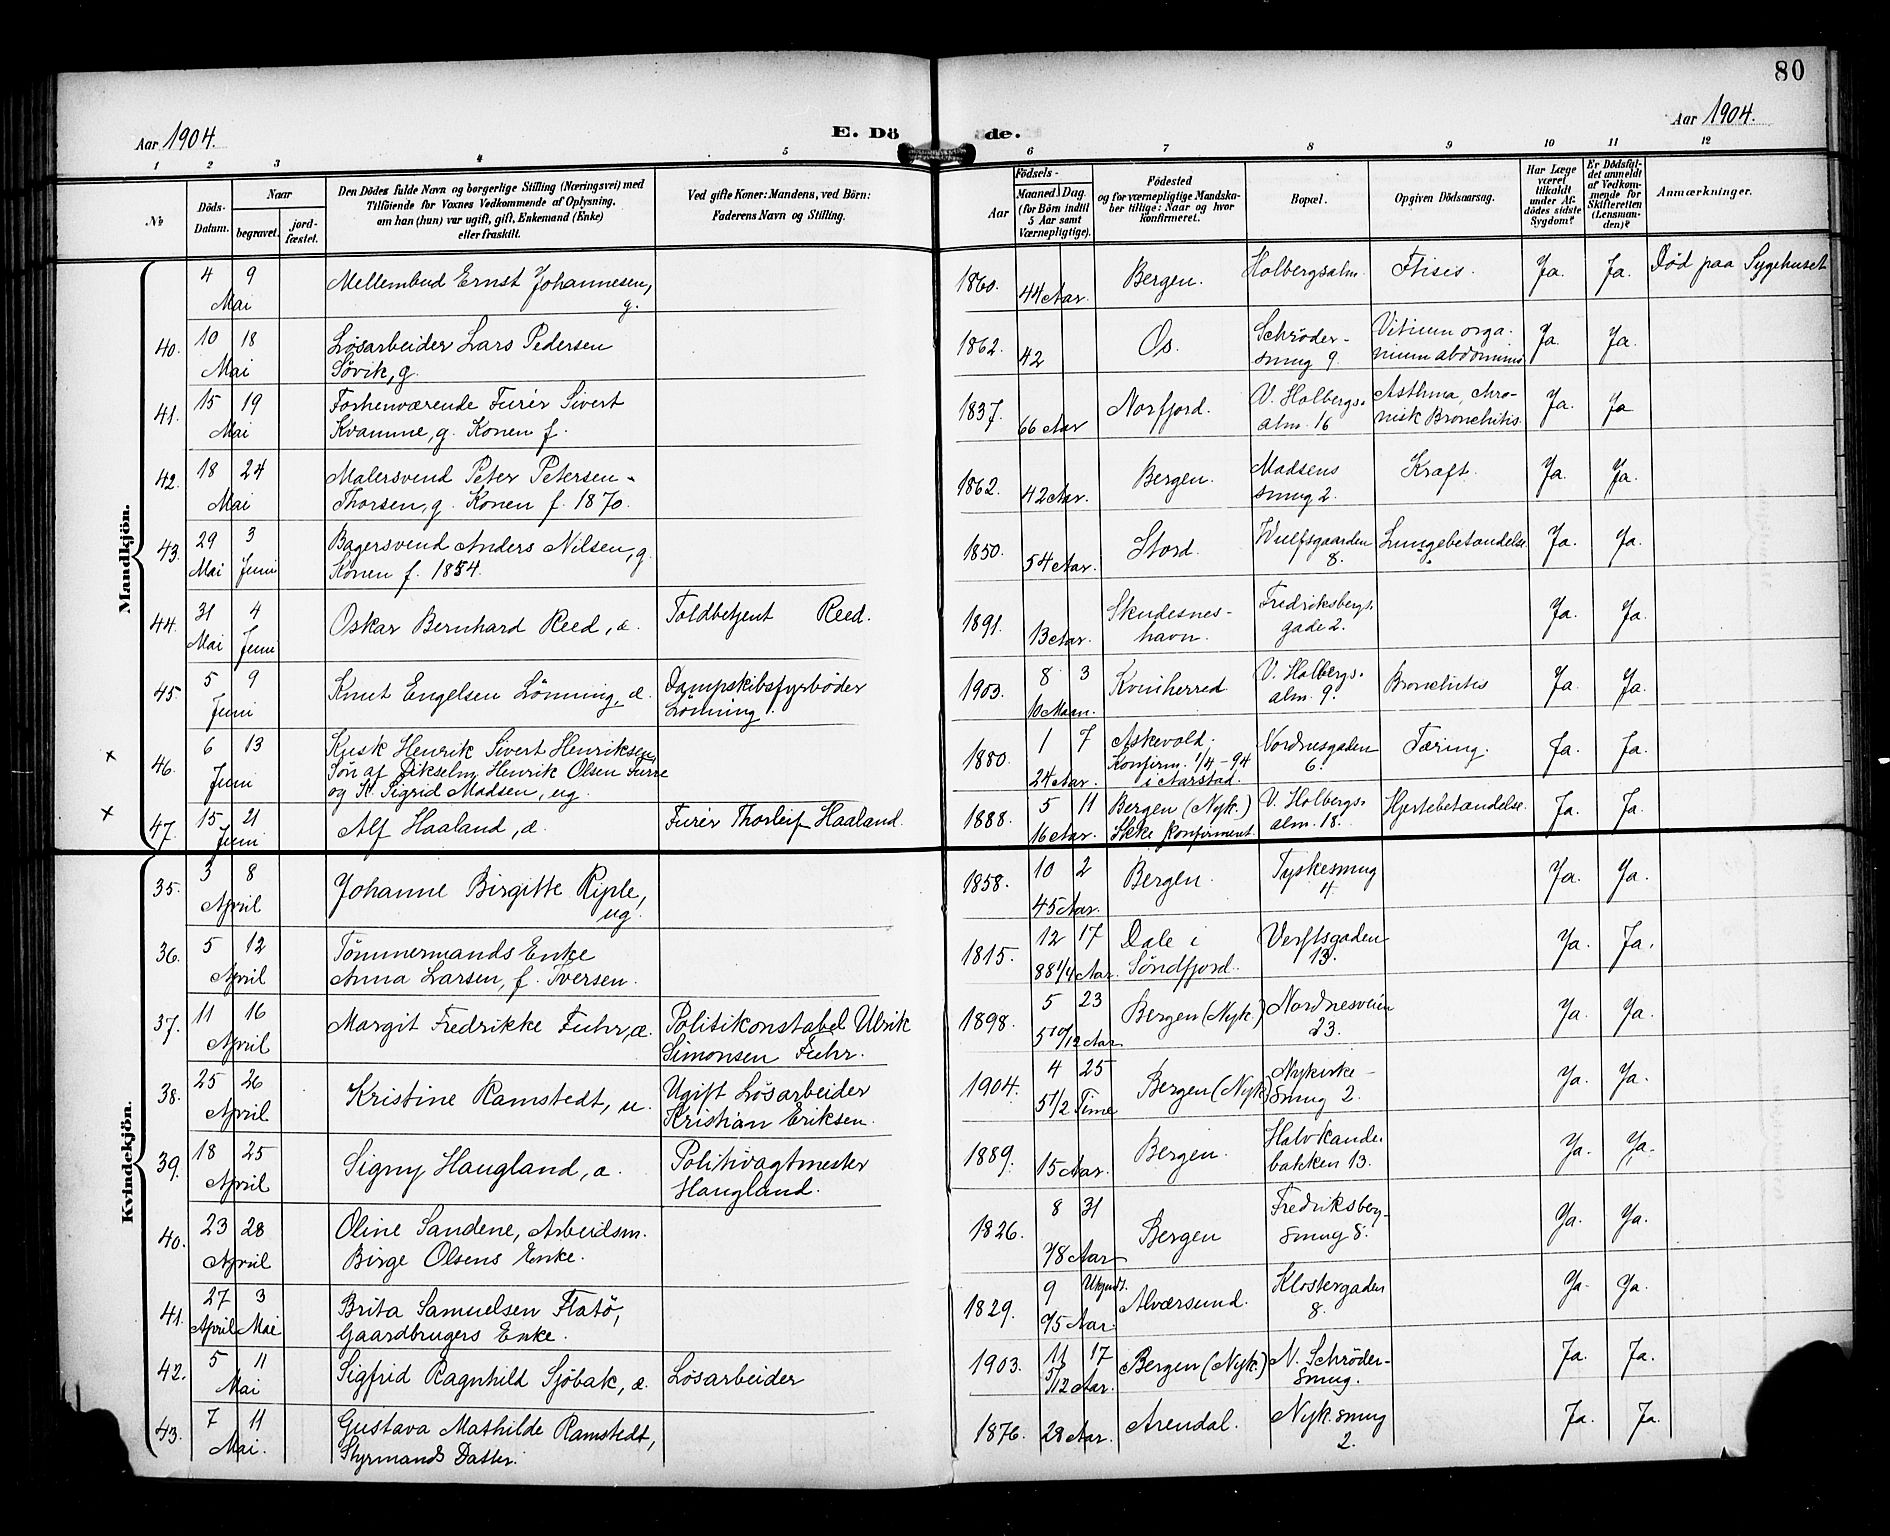 80
Aar 1904.
E. Döde.
Aar 1904.
1 2 3 4 5 6 7 8 9 10 11 12
No
Döds-
Datum.
Naar
begravet.
jord-
fæstet.
Den Dödes fulde Navn og borgerlige Stilling (Næringsvei) med
Tilföiende for Voxnes Vedkommende af Oplysning,
om han (hun) var ugift, gift, Enkemand (Enke)
eller fraskilt.
Ved gifte Koner: Mandens, ved Börn:
Faderens Navn og Stilling.
Födsels-
Aar
Maaned Dag
(for Börn indtil
5 Aar samt
Værnepligtige).
Födested
og for værnepligtige Mandska-
ber tillige: Naar og hvor
konfirmeret.
Bopæl.
Opgiven Dödsaarsag.
Har Læge
været
tilkaldt
under Af-
dödes sidste
Sygdom?
Er Dödsful-
det anmeldt
af Vedkom-
mende for
Skifteretten
(Lensman-
den)?
Anmærkninger.
Mandkjön.
4 9 Mai
Mellembud Ernst Johannesen,
g.
1860. 44 Aar. Bergen. Holbergsalm. Ftisis. Ja. Ja. Död paa Sygehuset
40. 10 18 Mai
Løsarbeider Lars Pedersen
Søvik, g.
1862. 42 Os. Schröder-
smug 9. Vitium orga-
nicum abdominis Ja. Ja.
41. 15 19 Mai
Forhenværende Furér Sivert
Kvamme, g. Konen f.
1837. 66 Aar Norfjord. V. Holbergs-
alm. 16 Asthma, chro-
nisk Bronchitis. Ja. Ja
42. 18 24 Mai
Malersvend Peter Petersen-
Thorsen, g. Konen f. 1870.
1862. 42 Aar. Bergen. Madsens
smug 2. Kraft. Ja. Ja.
43. 29 Mai 3 Juni
Bagersvend Anders Nilsen, g.
Konen f. 1854.
1850. 54 Aar. Stord. Wulfsgaarden
8. Lungebetændelse Ja. Ja.
44. 31 Mai 4 Juni
Oskar Bernhard Reed, æ. Toldbetjent Reed.
1891. 13 Aar. Skudesnes-
havn. Fredriksbergs-
gade 2. Ja. Ja.
45. 5 9 Juni
Knut Engelsen Lönning, æ. Dampskibsfyrbøder
Lönning.
1903. 8 3 10 Maan. Kvinherred V. Holbergs-
alm. 9. Bronchitis Ja. Ja.
x 46. 6 13 Juni
Kusk Henrik Sivert Henriksen,
Søn af Dikselm. Henrik Olsen Furre
og H. Sigrid Madsen, ug.
1880. 1 7 24 Aar. Askevold.
Konfirm. 1/4-94
i Aarstad. Nordnesgaden
6. Tæring. Ja. Ja.
x 47. 15 21 Juni
Alf Haaland, æ. Furér Thorleif Haaland.
1888. 5 11 16 Aar. Bergen (Nyk.)
Ikke konfirmeret. V. Holbergs-
alm. 18. Hjertebetændelse. Ja. Ja.
Kvindekjön.
35. 3 8 April
Johanne Birgitte Riple,
ug.
1858. 10 2 45 Aar. Bergen. Tyskesmug
4. Ja. Ja.
36. 5 12 April
Tömmermands Enke
Anna Larsen, f. Iversen.
1815. 12 17 88 1/4 Aar. Dale i
Søndfjord. Verftsgaden
13. Ja. Ja.
37. 11 16 April
Margit Fredrikke Fuhr, æ. Politikonstabel Ulrik
Simonsen Fuhr.
1898. 5 23 5 10/12 Aar Bergen (Nyk.) Nordnesveien
23. Ja. Ja.
38. 25 26 April
Kristine Ramstedt, u. Ugift Løsarbeider
Kristian Eriksen.
1904. 4 25 5 1/2 Time Bergen (Nyk.) Nykirke-
smug 2. Ja. Ja.
39. 18 25 April
Signy Haugland, æ. Politivagtmester
Haugland.
1889. 15 Aar. Bergen. Halvkande-
bakken 13. Ja. Ja.
40. 23 28 April
Oline Sandene, Arbeidsm.
Birge Olsens Enke.
1826. 8 31 78 Aar Bergen Fredriksberg-
smug 8. Ja. Ja.
41. 27 April 3 Mai
Brita Samuelsen Flatö,
Gaardbrugers Enke.
1829. 9 Ukjendt. 75 Aar. Alværsund. Klostergaden
8. Ja. Ja.
42. 5 11 Mai
Sigfrid Ragnhild Sjöbak, æ. Løsarbeider
1903. 11 17 5/12 Aar. Bergen (Nyk.) N. Schröder-
smug. Ja. Ja.
43. 7 11 Mai.
Gustava Mathilde Ramstedt,
Styrmands Datter.
1876. 28 Aar. Arendal. Nyk. smug
2. Ja. Ja.